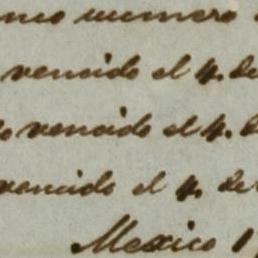 numero
vencido el 4. de
vencido el 4. d
vencido el 4. de
Mexico 1